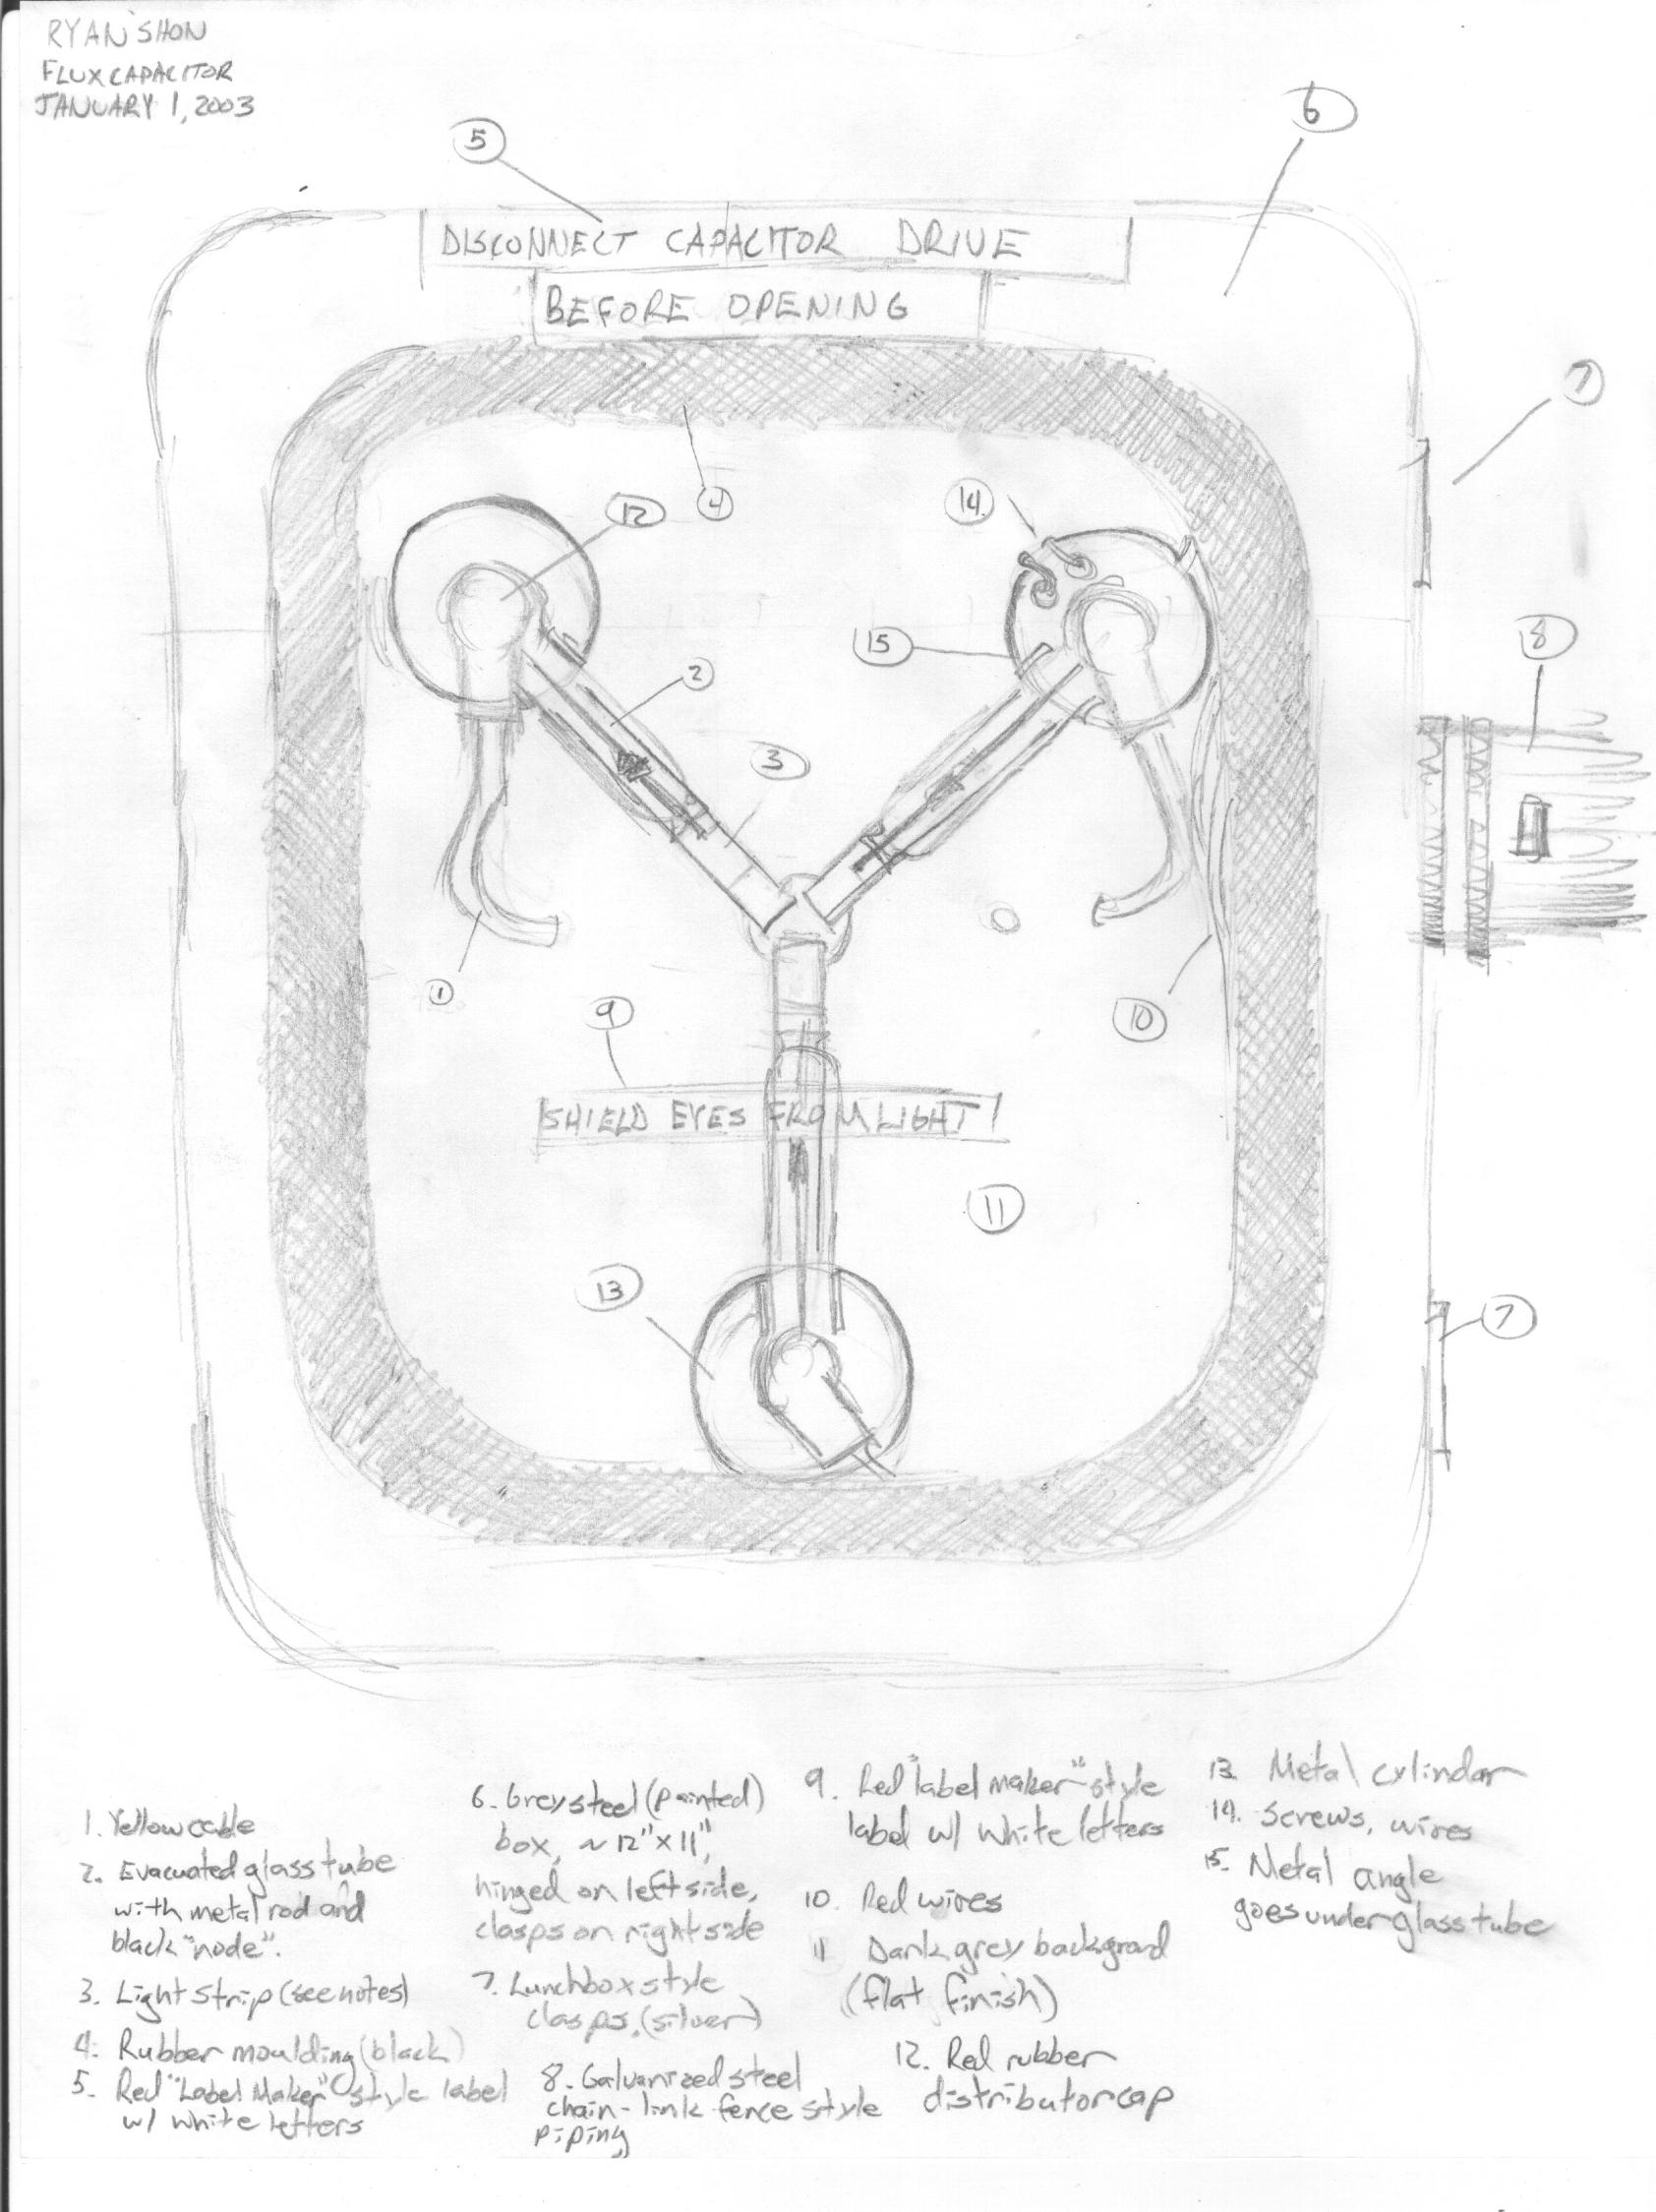 RYAN SHON
FLUX CAPACITOR
JANUARY 1, 2003
5
6
DISCONNECT CAPACITOR DRIVE
BEFORE OPENING
7
4
12
14.
15
8
2
3
1
9
10
SHIELD EYES FROM LIGHT!
11
13
7
1. Yellow cable
2. Evacuated glass tube
with metal rod and
black "node".
3. Light Strip (see notes)
4. Rubber moulding (black)
5. Red "Label Maker" style label
w/ white letters
6. Grey steel (painted)
box, ~ 12" x 11",
hinged on left side,
clasps on right side
7. Lunchbox style
clasps, (silver)
8. Galvanized steel
chain-link fence style
piping
9. Red "label maker" style
label w/ white letters
10. Red wires
11 Dark grey backgroud
(flat finish)
12. Red rubber
distributor cap
13. Metal cylindar
14. Screws, wires
15. Metal angle
goes under glass tube